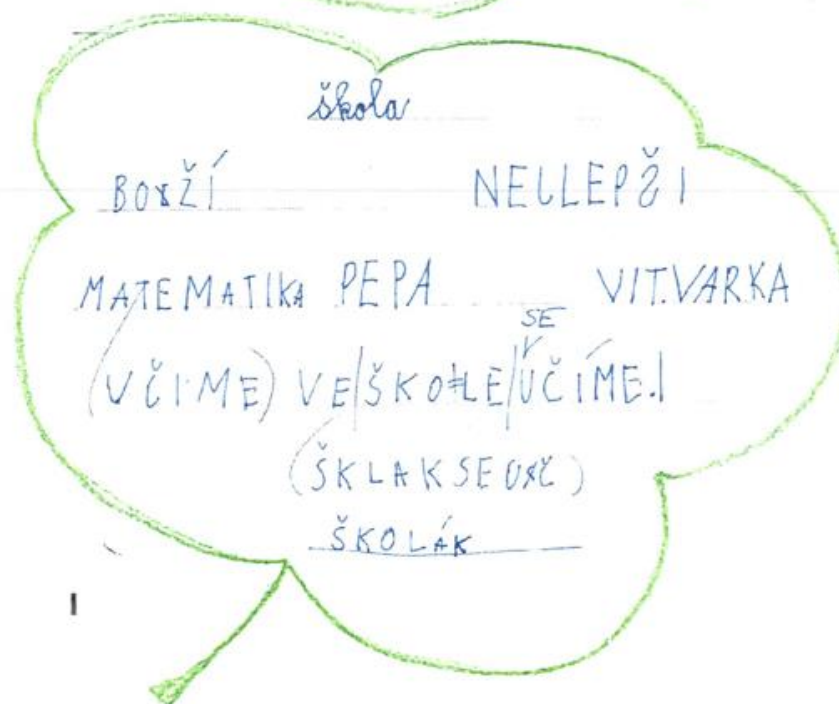 škola
BOŽÍ NEJLEPŠI
MATEMATIKA PEPA VIT.VARKA
SE
(VČIME) VE|ŠKOLE|UČÍME.
(ŠKLAKSEUČ)
ŠKOLÁK